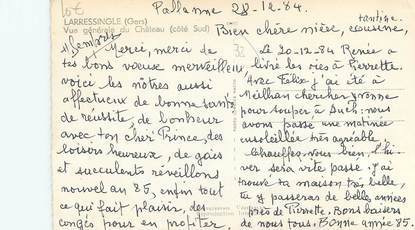 Pallanne 28-12.84.
LARRESSINGLE (Gers)
Vue générale du Château (côté Sud)
Bien chère nièce, cousine,
tantine.
Merci, merci de
tes bons vœux merveilleux
voici les nôtres aussi
affectueux de bonne santé
de réussite, de bonheur
avec ton cher Prince, des
loisirs heureux, de gais
et succulents réveillons
nouvel an 85, enfin tout
ce qui fait plaisir, des
congés pour en profiter,
32
Le 20-12-84 Renée a
livré les oies à Pierrette.
Avec Félix j'ai été à
Meilhan chercher Yvonne
pour souper à Auch: nous
avons passé une matinée
ensoleillée très agréable.
Chauffez-vous bien, l'hi-
ver sera vite passé. J'ai
trouvé ta maison très belle,
tu y passeras de belles années
près de Pierrette. Bons baisers
de nous tous. Bonne année 85.